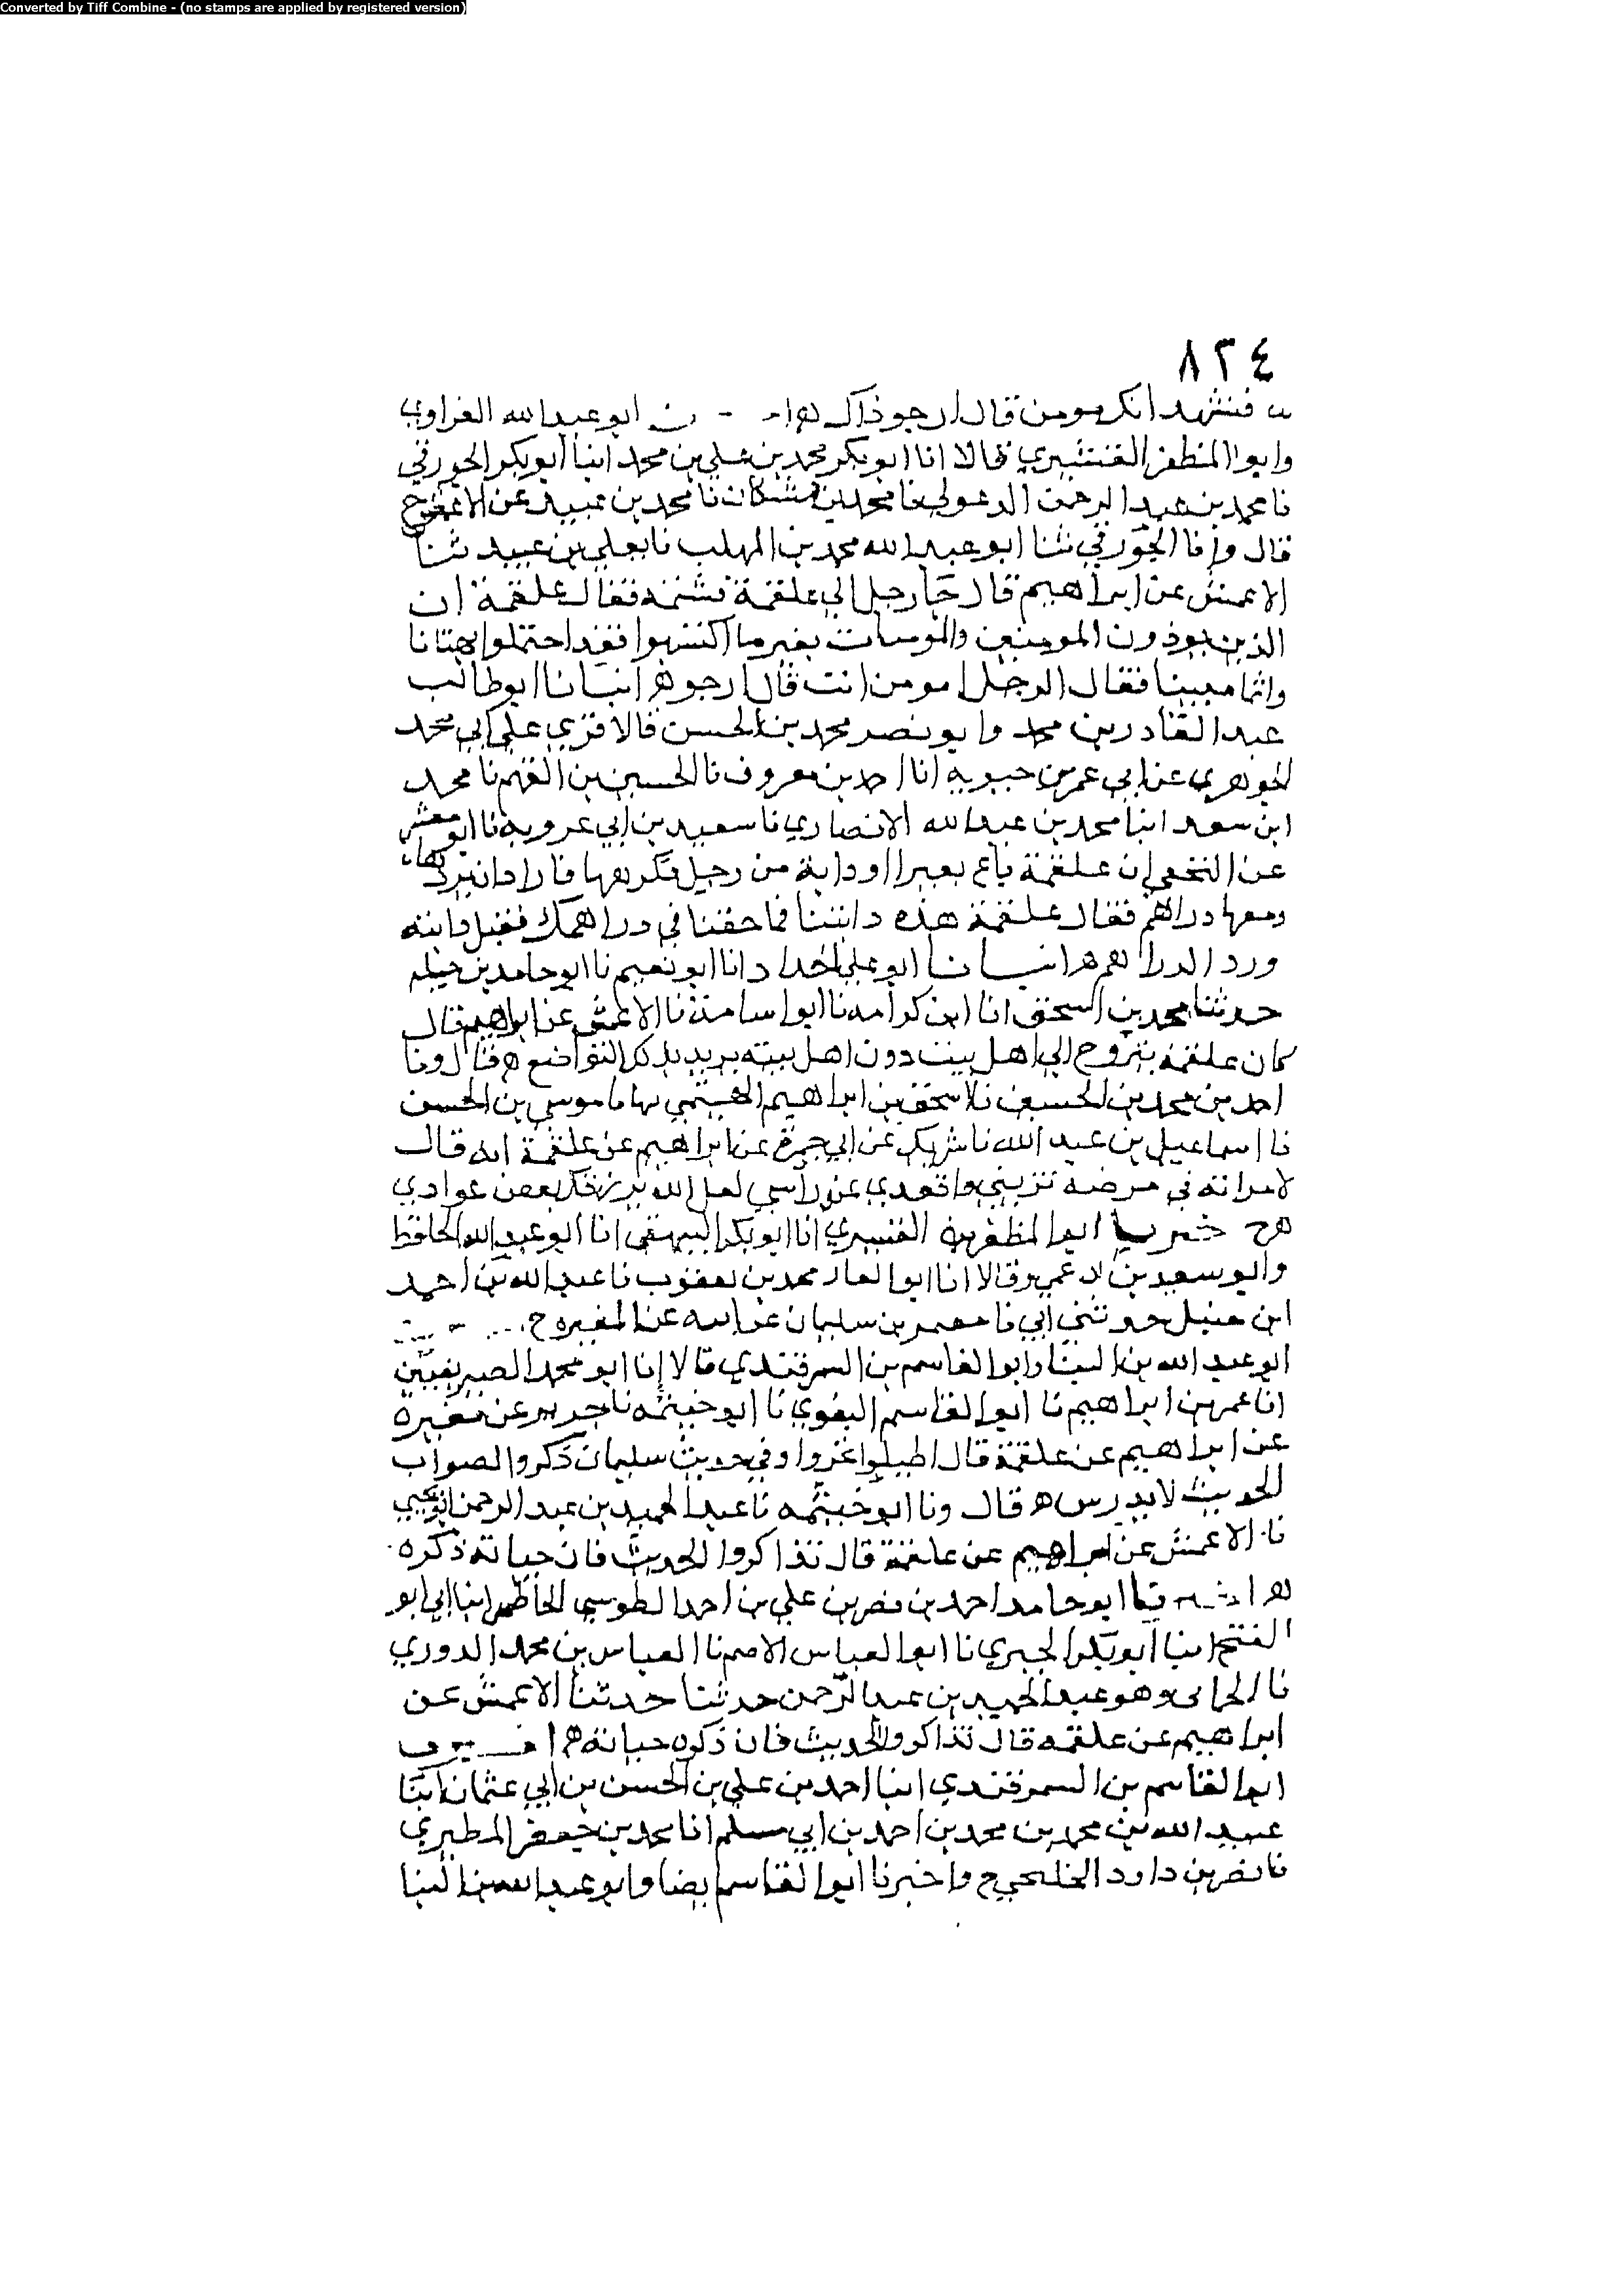 Converted by Tiff Combine - (no stamps are applied by registered version)
٨٢٤
فتشهد انك مومن قال ارجو ذاك ه ابو عبد الله الفراوي
وابو المظفر القشيري قالا انا ابو بكر محمد بن علي بن محمد انبا ابو بكر الجوزقي
نا محمد بن عبد الرحمن الدعولي نا محمد بن مشكان نا محمد بن عبيد عن الاعمش ح
قال وانا الجوزقي ثنا ابو عبد الله محمد بن المهلب نا يعلي بن عبيد ثنا
الاعمش عن ابراهيم قال جا رجل الي علقمة فشتمه فقال علقمة ان
الذين يوذون المومنين والمومنات بغير ما اكتسبوا فقد احتملوا بهتانا
واثما مبينا فقال الرجل امومن انت قال ارجو ه انبانا ابو طالب
عبد القادر بن محمد وابو نصر محمد بن الحسن قالا قري علي ابي محمد
الجوهري عن ابي عمر بن حيويه انا احمد بن معروف نا الحسين بن الفهم نا محمد
ابن سعد انبا محمد بن عبد الله الانصاري نا سعيد بن ابي عروبة نا ابو معشر
عن النخعي ان علقمة باع بعيرا او دابة من رجل فكرهها فاراد ان يردها
ومعها دراهم فقال علقمة هذه دابتنا فما حقنا في دراهمك فقبل دابته
ورد الدراهم ه انبانا ابو علي الحداد انا ابو نعيم نا ابو حامد بن جبلة
حدثنا محمد بن اسحق انا ابن كرامه نا ابو اسامة نا الاعمش عن ابراهيم قال
كان علقمة يتزوج الي اهل بيت دون اهل بيته يريد بذلك التواضع ه قال ونا
احمد بن محمد بن الحسين نا اسحق بن ابراهيم الهيثمي بها نا موسي بن الحسن
نا اسماعيل بن عبد الله نا شريك عن ابي حمزة عن ابراهيم عن علقمة انه قال
لامراته في مرضه تزيني واقعدي عن راسي لعل الله يرزقك بعض عوادي
ه ح ابو المظفر بن القشيري انا ابو بكر البيهقي انا ابو عبد الله الحافظ
وابو سعيد بن ابي عمرو قالا انا ابو العباس محمد بن يعقوب نا عبد الله بن احمد
ابن حنبل حدثني ابي نا معمر بن سليمان عن ابيه عن المغيره ح
ابو عبد الله بن البنا وابو القاسم بن السمرقندي قالا انا ابو محمد الصريفيني
انا عمر بن ابراهيم نا ابو القاسم البغوي نا ابو خيثمه نا جرير عن مغيرة
عن ابراهيم عن علقمة قال اطيلوا وفي حديث سليمان ذكروا الصواب
الحديث لا يدرس ه قال ونا ابو خيثمه نا عبد الحميد بن عبد الرحمن ابو يحيي
نا الاعمش عن ابراهيم عن علقمة قال تذاكروا الحديث فان حياته ذكره
ه ابو حامد احمد بن نصر بن علي بن احمد الطوسي انبا ابي ابو
الفتح انبا ابو بكر الحيري نا ابو العباس الاصم نا العباس بن محمد الدوري
نا الحماني وهو عبد الحميد بن عبد الرحمن حدثنا حدثنا الاعمش عن
ابراهيم عن علقمه قال تذاكروا الحديث فان ذكره حياته ه
ابو القاسم بن السمرقندي انبا احمد بن علي بن الحسن بن ابي عثمان انبا
عبيد الله بن محمد بن محمد بن احمد بن ابي مسلم انا محمد بن جعفر المطيري
نا نصر بن داود الخلنجي ح واخبرنا ابو القاسم ايضا وابو عبد الله بن البنا